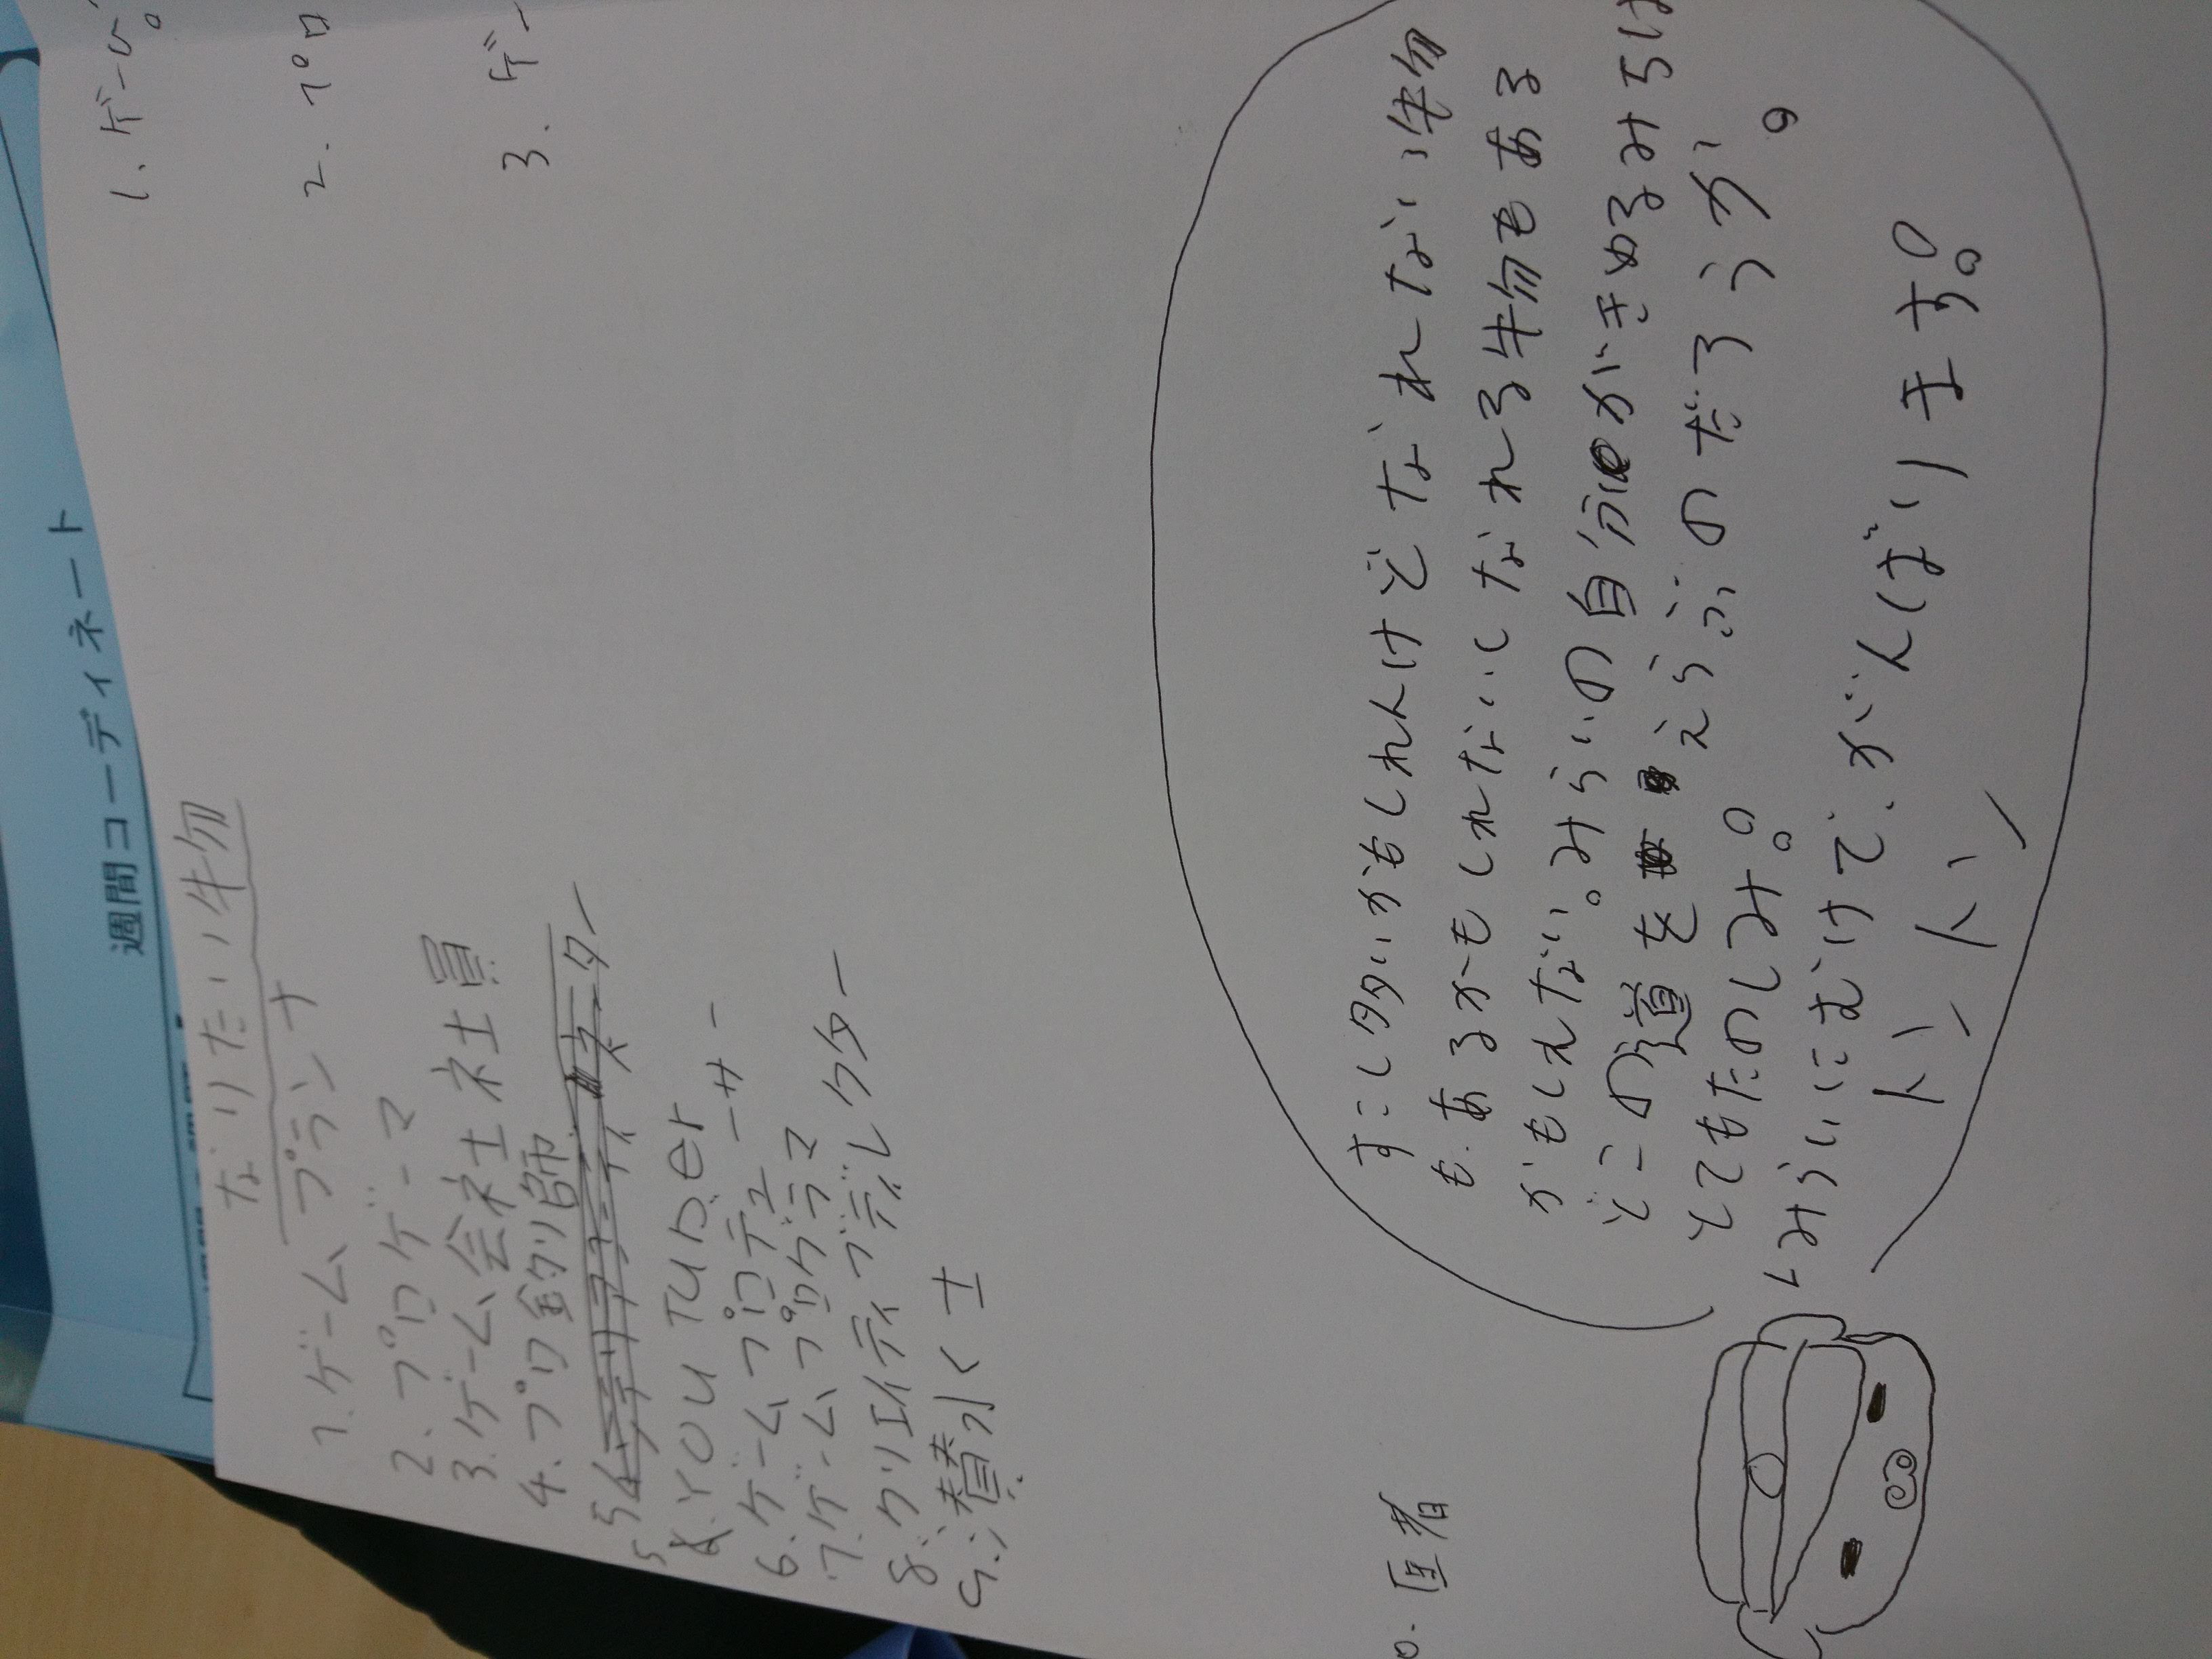 週間コーディネート
なりたい物
1.ゲームプランナ
2.プロゲーマ
3.ゲーム会社社員
4.プロ釣り師
5
5.YOUTUber
6.ゲームプロデューサー
7.ゲームプログラマ
8.クリエイティブディレクター
9.潜水士
0.医者
1.ゲー
2.プロ
3.ゲー
すこし多いかもしれんけどなれない物
も.あるかもしれないしなれる物もある
かもしれない。みらいの自分がきめるみちは
どの道をえらぶのだろうか。
とてもたのしみ。
みらいにむけて.がんばります。